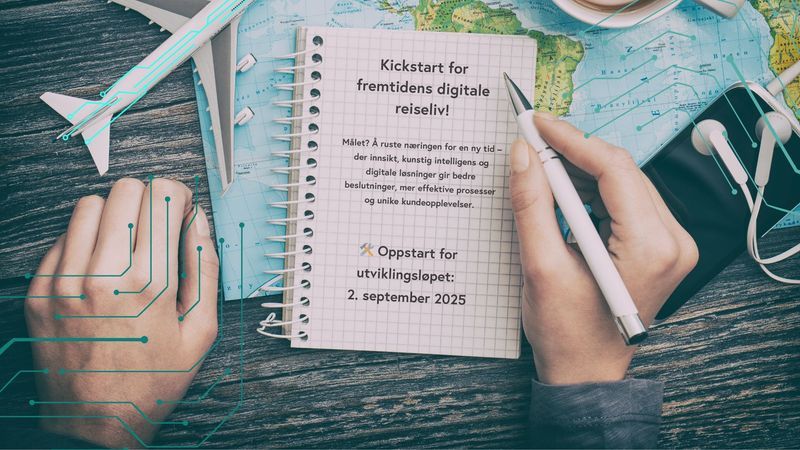 Kickstart for
fremtidens digitale
reiseliv!
Målet? Å ruste næringen for en ny tid –
der innsikt, kunstig intelligens og
digitale løsninger gir bedre
beslutninger, mer effektive prosesser
og unike kundeopplevelser.
🛠️ Oppstart for
utviklingsløpet:
2. september 2025